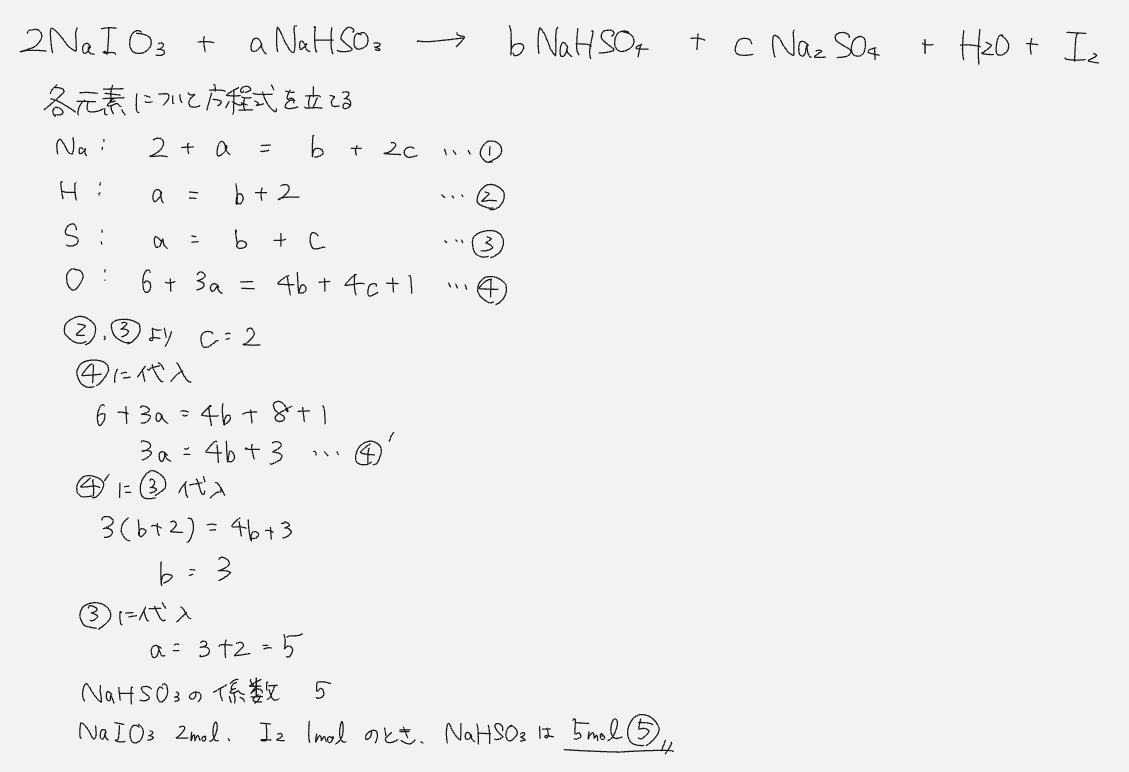 2NaIO₃ + aNaHSO₃ → bNaHSO₄ + cNa₂SO₄ + H₂O + I₂
各元素について方程式を立てる
Na: 2 + a = b + 2c …①
H: a = b + 2 …②
S: a = b + c …③
O: 6 + 3a = 4b + 4c + 1 …④
②,③より c = 2
④に代入
6 + 3a = 4b + 8 + 1
3a = 4b + 3 …④'
④'に③代入
3(b+2) = 4b+3
b = 3
③に代入
a = 3+2 = 5
NaHSO₃の係数 5
NaIO₃ 2mol、I₂ 1molのとき、NaHSO₃は 5mol⑤〃